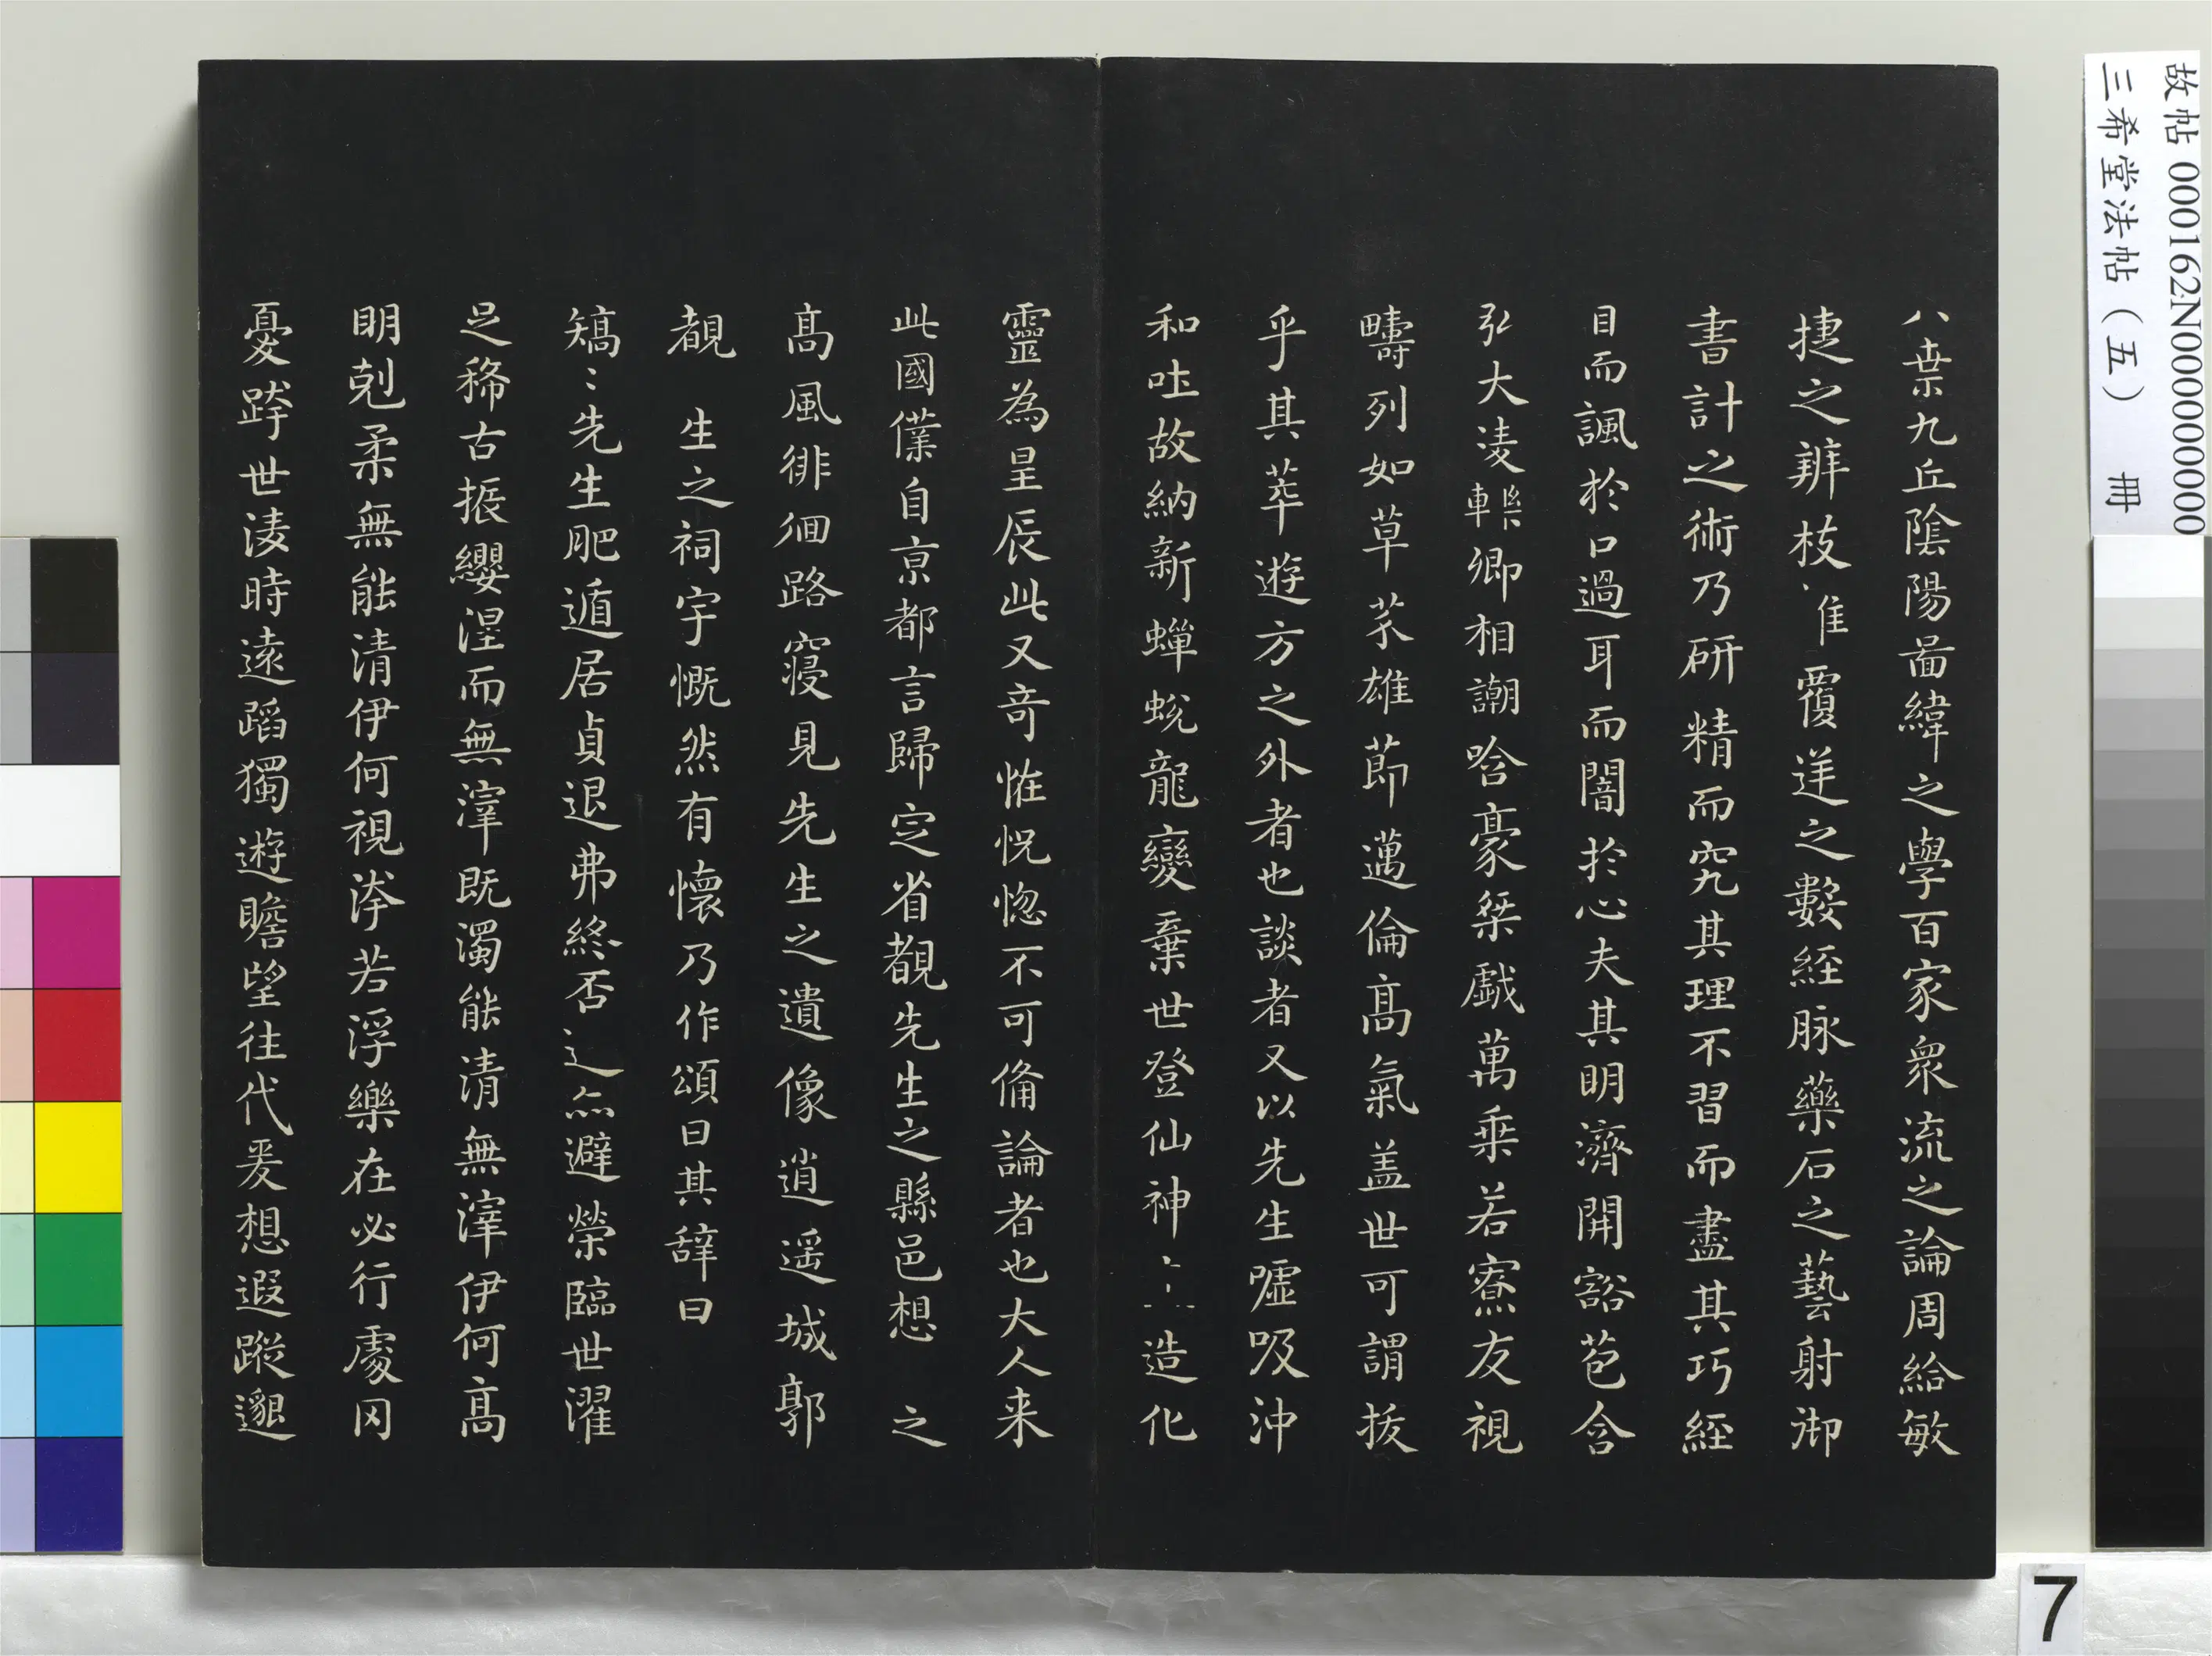 故帖 000162N000000000
三希堂法帖（五） 冊
八索九丘陰陽啚緯之學百家衆流之論周給敏
捷之辨枝隹覆逆之數經脉藥石之藝射御
書計之術乃研精而究其理不習而盡其巧經
目而諷於口過耳而闇扵心夫其明濟開豁苞含
弘大淩轢卿相謿哈豪桀戲萬乗若寮友視
疇列如草芥雄節邁倫高氣盖世可謂拔
乎其萃遊方之外者也談者又以先生噓吸沖
和吐故納新蟬蛻龍變棄世登仙神造化
靈為星辰此又竒恠怳惚不可俻論者也大人来
此國僕自京都言歸定省覩先生之縣邑想 之
高風徘徊路寢見先生之遺像逍遥城郭
覩 生之祠宇慨然有懷乃作頌曰其辞曰
矯〻先生肥遁居貞退弗終否亦避榮臨世濯
足稀古振纓涅而無滓既濁能清無滓伊何高
明剋柔無能清伊何視洿若浮樂在必行處冈
憂跨世淩時逺蹈獨遊瞻望往代爰想遐蹤邈
7